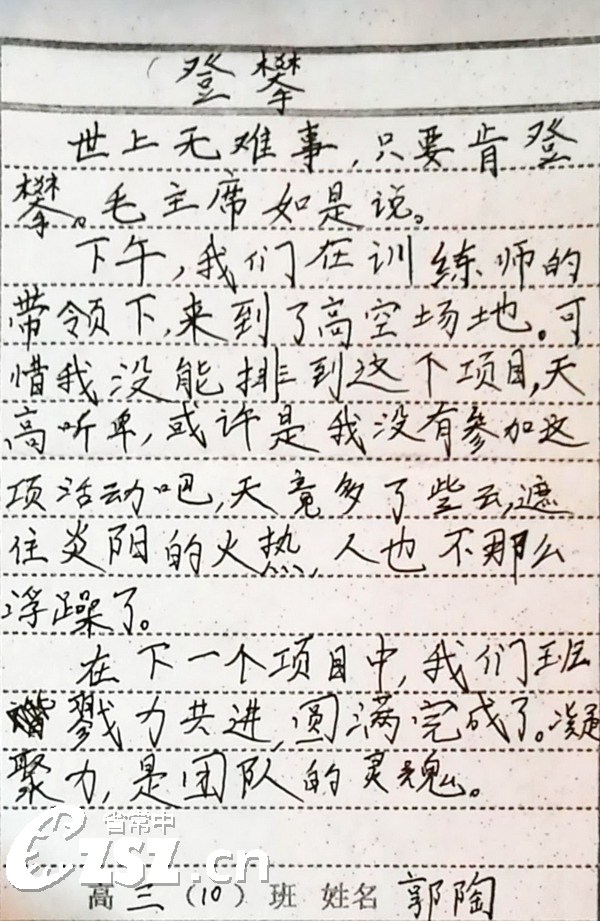 登攀
世上无难事,只要肯登
攀。毛主席如是说。
下午,我们在训练师的
带领下,来到了高空场地。可
惜我没能排到这个项目,天
高听卑,或许是我没有参加这
项活动吧,天竟多了些云,遮
住炎阳的火热,人也不那么
浮躁了。
在下一个项目中,我们班
戮力共进,圆满完成了。凝
聚力,是团队的灵魂。
省常中
CZSZ.cn
高三(10)班 姓名 郭陶